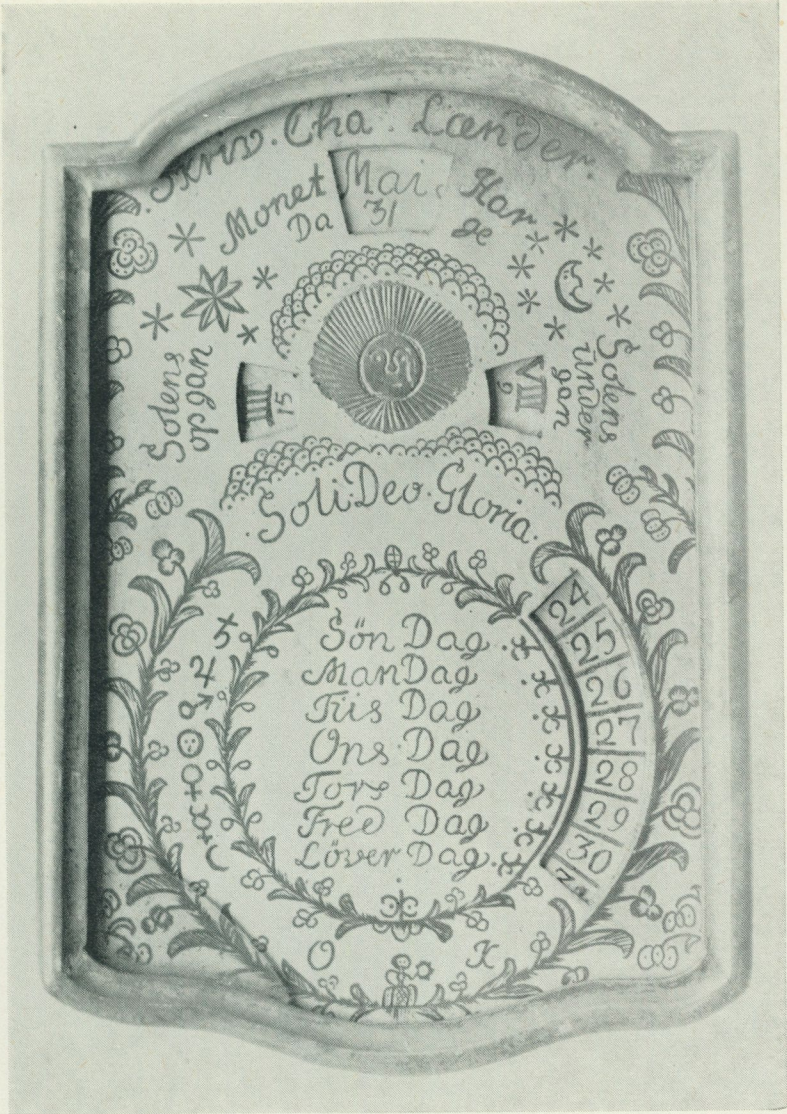 Skriv. Cha. Lænder.
Monet Mai. Har
Da 31 ge
Solens opgan
IIII 15
VIII 9
Solens ūnder gan
·Soli·Deo·Gloria·
Sön Dag
Man Dag
Tüs Dag
Ons·Dag
Tors Dag
Fred Dag
Löver Dag
24
25
26
27
28
29
30
O K